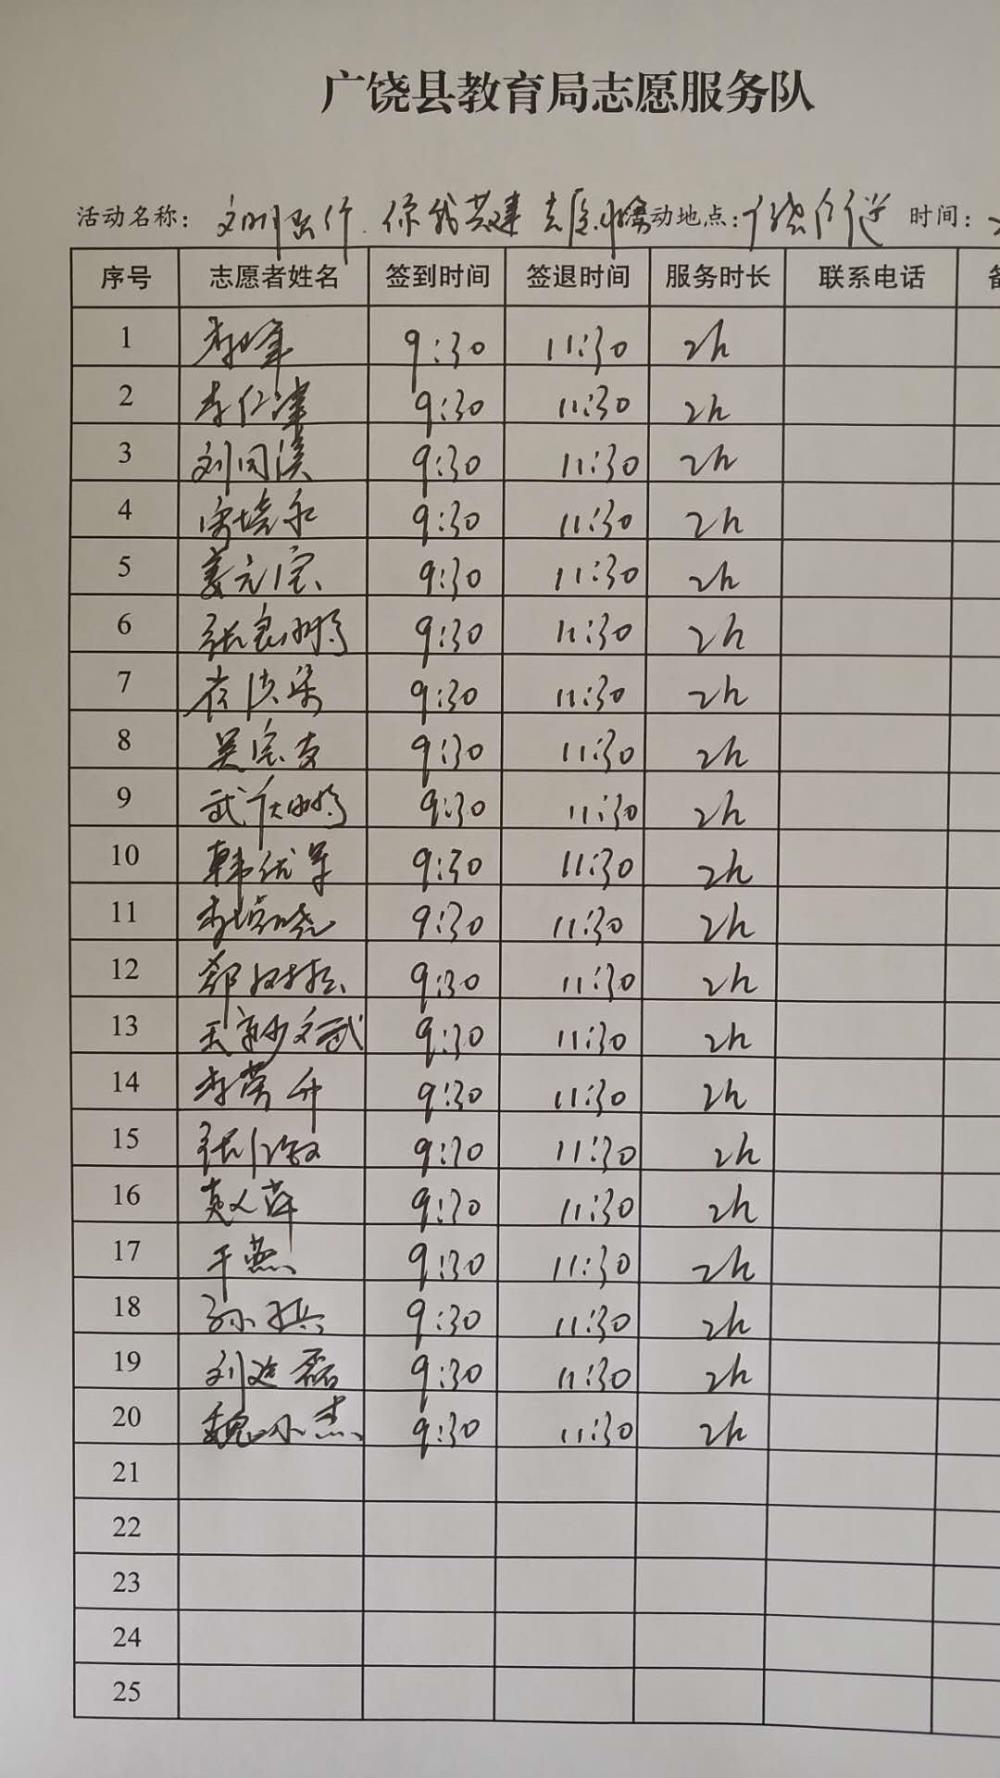 广饶县教育局志愿服务队
活动名称: 文明出行 你我共建 志愿服务 活动地点: 时间:
序号 志愿者姓名 签到时间 签退时间 服务时长 联系电话
1 李峰 9:30 11:30 2h
2 李仁津 9:30 11:30 2h
3 刘同溪 9:30 11:30 2h
4 宋培永 9:30 11:30 2h
5 姜元宝 9:30 11:30 2h
6 张良鹏 9:30 11:30 2h
7 9:30 11:30 2h
8 吴宗 9:30 11:30 2h
9 武 9:30 11:30 2h
10 韩 军 9:30 11:30 2h
11 李 晓 9:30 11:30 2h
12 树松 9:30 11:30 2h
13 文武 9:30 11:30 2h
14 李荣升 9:30 11:30 2h
15 张 敏 9:30 11:30 2h
16 赵萍 9:30 11:30 2h
17 于燕 9:30 11:30 2h
18 孙 9:30 11:30 2h
19 刘建磊 9:30 11:30 2h
20 魏小杰 9:30 11:30 2h
21
22
23
24
25